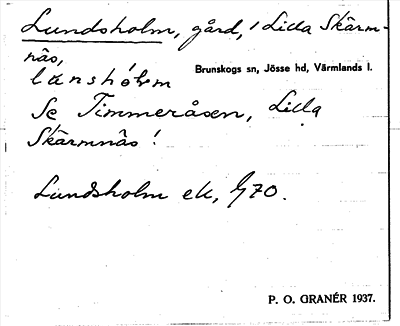 Lundsholm, gård, i Lilla Skärm-
näs,
Brunskogs sn, Jösse hd, Värmlands l.
lánshólm
Se Timmeråsen, Lilla
Skärmnäs!
Lundsholm ek, 1/70.
P. O. GRANÉR 1937.